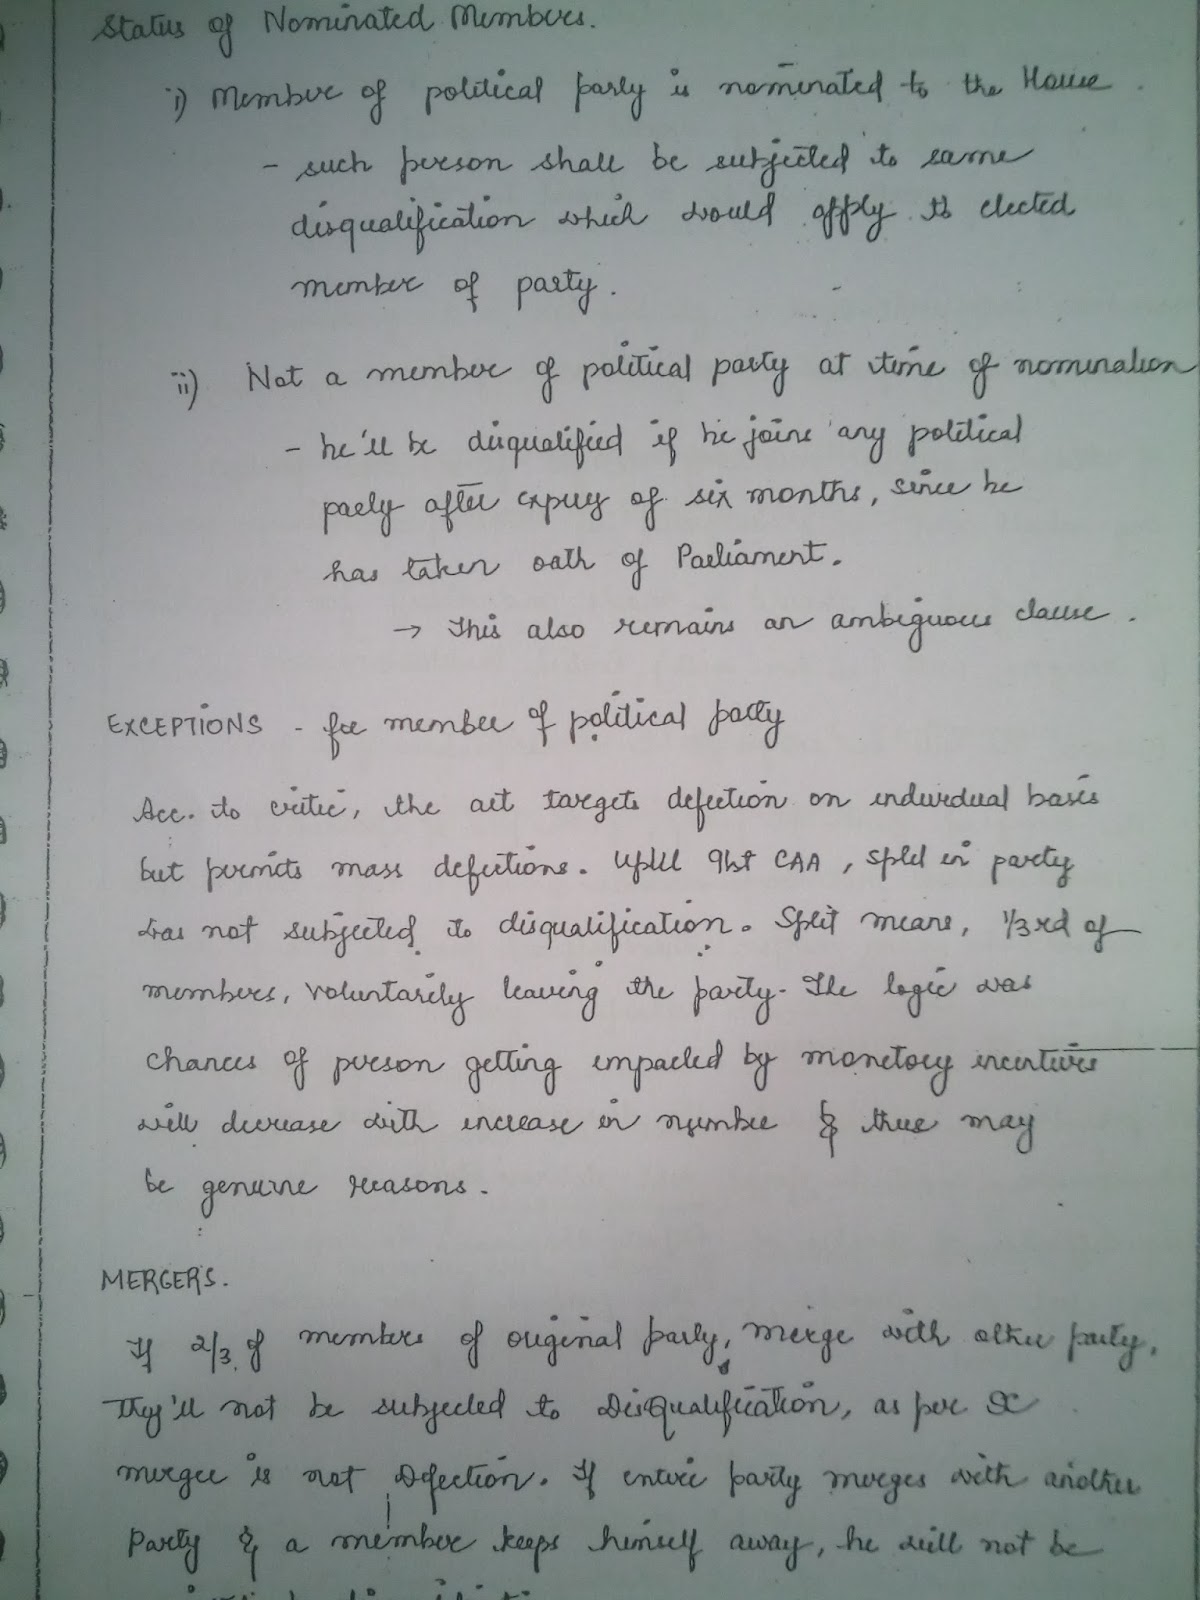 Status of Nominated Members.
i) Member of political party is nominated to the House.
- such person shall be subjected to same
disqualification which would apply to elected
member of party.
ii) Not a member of political party at time of nomination
- he'll be disqualified if he joins any political
party after expiry of six months, since he
has taken oath of Parliament.
→ This also remains an ambiguous clause.
EXCEPTIONS - for member of political party
Acc. to critic, the act targets defection on individual basis
but permits mass defections. Uptill 91st CAA, split in party
was not subjected to disqualification. Split means, 1/3rd of
members, voluntarily leaving the party. The logic was
chances of person getting impacted by monetory incentives
will decrease with increase in number & thus may
be genuine reasons.
MERGERS.
If 2/3 of members of original party, merge with other party,
They'll not be subjected to Disqualification, as per SC
merger is not Defection. If entire party merges with another
Party & a member keeps himself away, he will not be